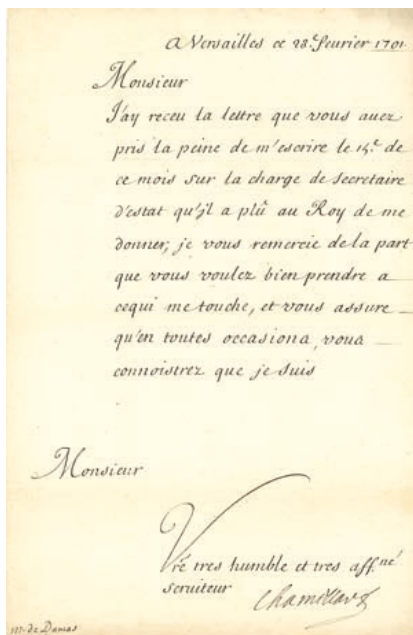 A Versailles ce 28.e feurier 1701.
Monsieur
J'ay receu la lettre que vous auez
pris la peine de m'escrire le 15.e de
ce mois sur la charge de secretaire
d'estat qu'jl a plû au Roy de me
donner; je vous remercie de la part
que vous voulez bien prendre a
cequi me touche, et vous assure
qu'en toutes occasions, vous
connoistrez que je suis
Monsieur
Vre tres humble et tres aff.né
seruiteur
Chamillart
m. de Damas